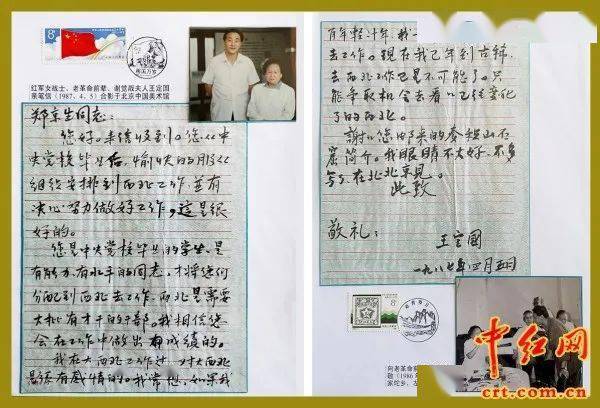 8
红军女战士、老革命前辈、谢觉哉夫人王定国
亲笔信(1987.4.5)合影于北京中国美术馆
郑京生同志:
您好。来信收到。您从中
央党校毕业后,愉快的服从
组织安排到西北工作,并有
决心努力做好工作,这是很
好的。
您是中央党校毕业的学生,是
有能力有水平的同志,才将您们
分配到西北去工作。西北是需要
大批有才干的干部。我相信您
会在工作中做出有成绩的。
我在大西北工作过,对大西北
是很有感情的。我常想,如果我
百年轻十年,我一
去工作。现在我已年到古稀,
去西北工作已是不可能了。只
能争取机会去看一已经变化
了的西北。
谢谢您邮来的麦积山石
窟简介。我眼睛不大好,不多
写了,在北京见。
此致
敬礼!
王定国
一九八七年四月五日
8
向老革命前
敬(1986
家坨乡,左
中红网
crt.com.cn